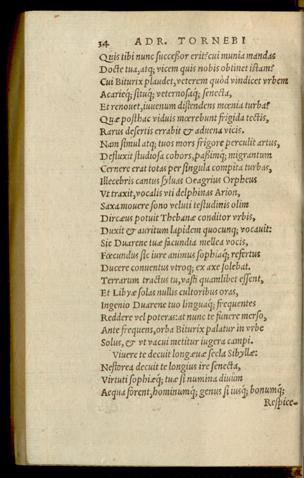 34 ADR. TORNEBI
Quis tibi nunc succeßor erit? cui munia mandas
Docte tua, atq; vicem quis nobis obtinet istam?
Cui Biturix plaudet, veterem quòd vindicet vrbem
Acarieq; situq; veternosaq; senecta,
Et renouet, iuuenum distendens mœnia turba?
Quæ posthac viduis mœrebunt frigida tectis,
Rarus desertis errabit & aduena vicis.
Nam simul atq; tuos mors frigore perculit artus,
Defluxit studiosa cohors, paßimq; migrantum
Cernere erat totas per singula compita turbas,
Illecebris cantus syluas Oeagrius Orpheus
Vt traxit, vocalis vti delphinas Arion,
Saxa mouere sono veluti testudinis olim
Dircæus potuit Thebanæ conditor vrbis,
Duxit & auritum lapidem quocunq; vocauit:
Sic Duarene tuæ facundia mellea vocis,
Fœcundus sic iure animus sophiaq; refertus
Ducere conuentus vtroq; ex axe solebat.
Terrarum tractus tu, vasti quamlibet essent,
Et Libyæ solas nullis cultoribus oras,
Ingenio Duarene tuo linguaq; frequentes
Reddere vel poteras: at nunc te funere merso,
Ante frequens, orba Biturix palatur in vrbe
Solus, & vt vacui metitur iugera campi.
Viuere te decuit longæua secla Sibyllæ:
Nestorea decuit te longius ire senecta,
Virtuti sophiæq; tuæ si numina diuûm
Aequa forent, hominumq; genus si iusq; bonumq;
Respice-